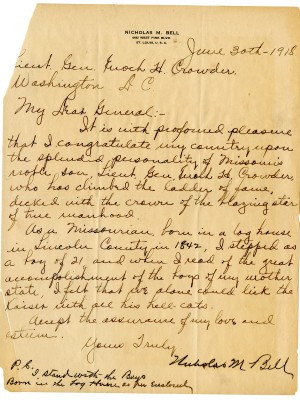 NICHOLAS M. BELL
ST. LOUIS, U.S.A.
June 30th - 1918
Lieut. Gen. Enoch H. Crowder,
Washington D C
My Dear General:-
It is with profound pleasure
that I congratulate my country upon
the splendid personality of Missouri's
noble, son, Lieut. Gen. Enoch H. Crowder,
who has climbed the ladder of fame,
decked with the crown of the blazing star
of true manhood.
As a Missourian, born in a log house
in Lincoln County in 1842, I stepped as
a boy of 21 and when I read of the great
accomplishment of the boys of my mother
state, I felt that we alone could lick the
Kaiser with all his hell-cats.
Accept the assurance of my love and
esteem.
Yours Truly
Nicholas M. Bell
P.S. I stand with the Boys
Born in the Log House as per Enclosed